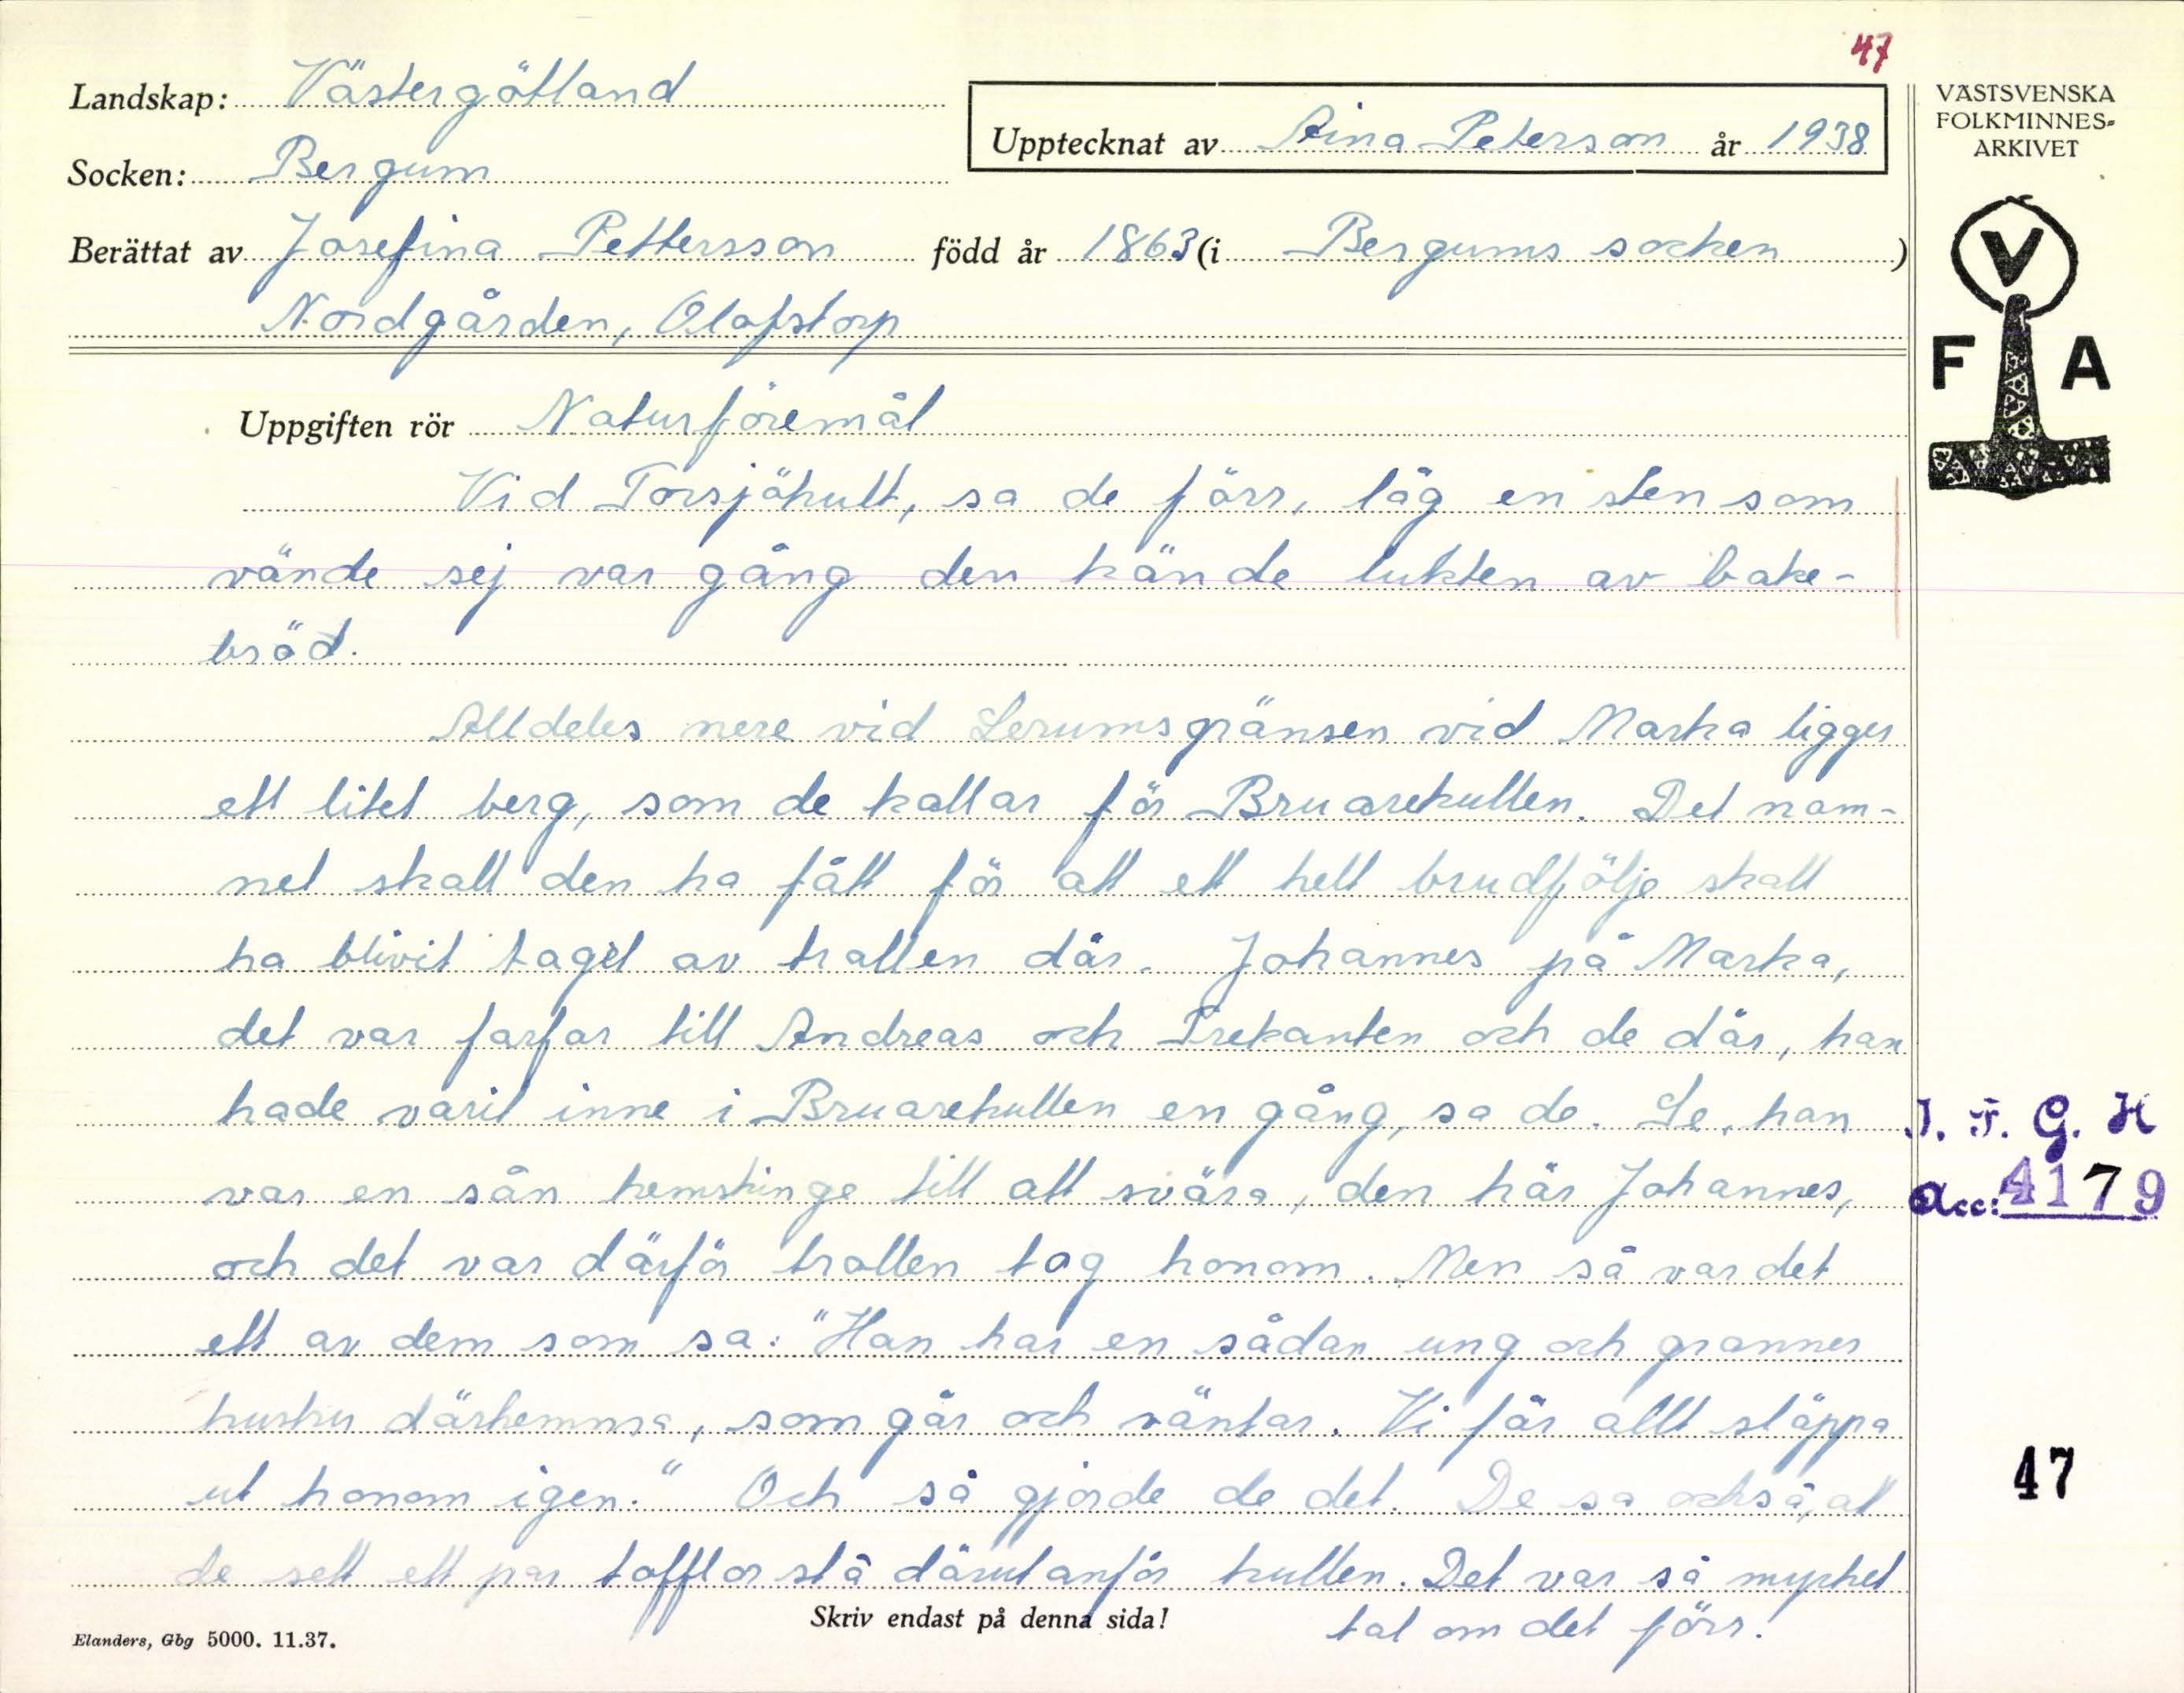 47
Landskap: Västergötland
Socken: Bergum
Upptecknat av Aina Peterson år 1938
Berättat av Josefina Pettersson född år 1863 (i Bergums socken)
Nordgården, Olofstorp
VÄSTSVENSKA
FOLKMINNES-
ARKIVET
V
F A
Uppgiften rör Naturföremål
Vid Torsjöhult, sa de förr, låg en sten som
vände sej var gång den kände lukten av bake-
bröd.
Alldeles nere vid Lerumsgränsen vid Marka ligger
ett litet berg, som de kallar för Bruarekullen. Det nam-
net skall den ha fått för att ett helt brudfölje skall
ha blivit taget av trollen där. Johannes på Marka,
det var farfar till Andreas och Trekanten och de där, han
hade varit inne i Bruarekullen en gång, sa de. Se, han
var en sån hemskinge till att svära, den här Johannes,
och det var därför trollen tog honom. Men så var det
ett av dem som sa: "Han har en sådan ung och granner
hustru därhemma, som går och väntar. Vi får allt släppa
ut honom igen." Och så gjorde de det. De sa också, att
de sett ett par tofflor stå därutanför kullen. Det var så mycket
tal om det förr.
J. F. G. H
Acc: 4179
47
Skriv endast på denna sida!
Elanders, Gbg 5000. 11.37.